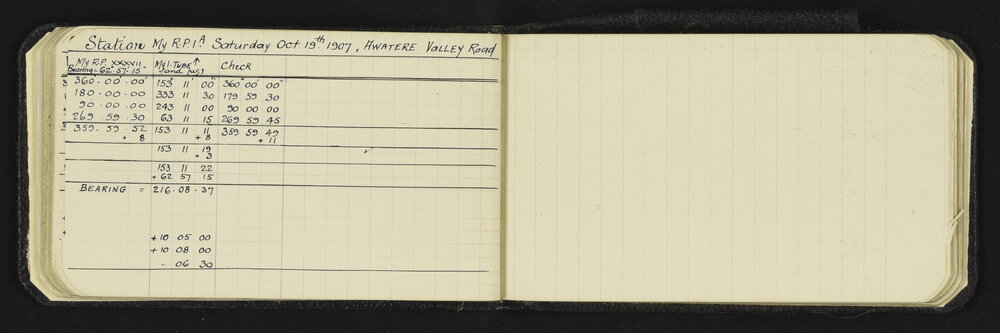 Station My R.P.1A Saturday Oct 19th 1907, AWATERE VALLEY ROAD
My R.P. XXXVII My I.TUBE↑ Check
Bearing=62°.57'.15" (and peg)
360.00.00 153° 11' 00" 360° 00' 00"
180.00.00 333 11 30 179 59 30
90.00.00 243 11 00 90 00 00
269.59.30 63 11 15 269 59 45
359.59.52 153 11 11 359 59 49
+ 8 + 8 + 11
153 11 19
+ 3
153 11 22
+ 62 57 15
BEARING = 216.08.37
+10 05 00
+10 08 00
" 06 30